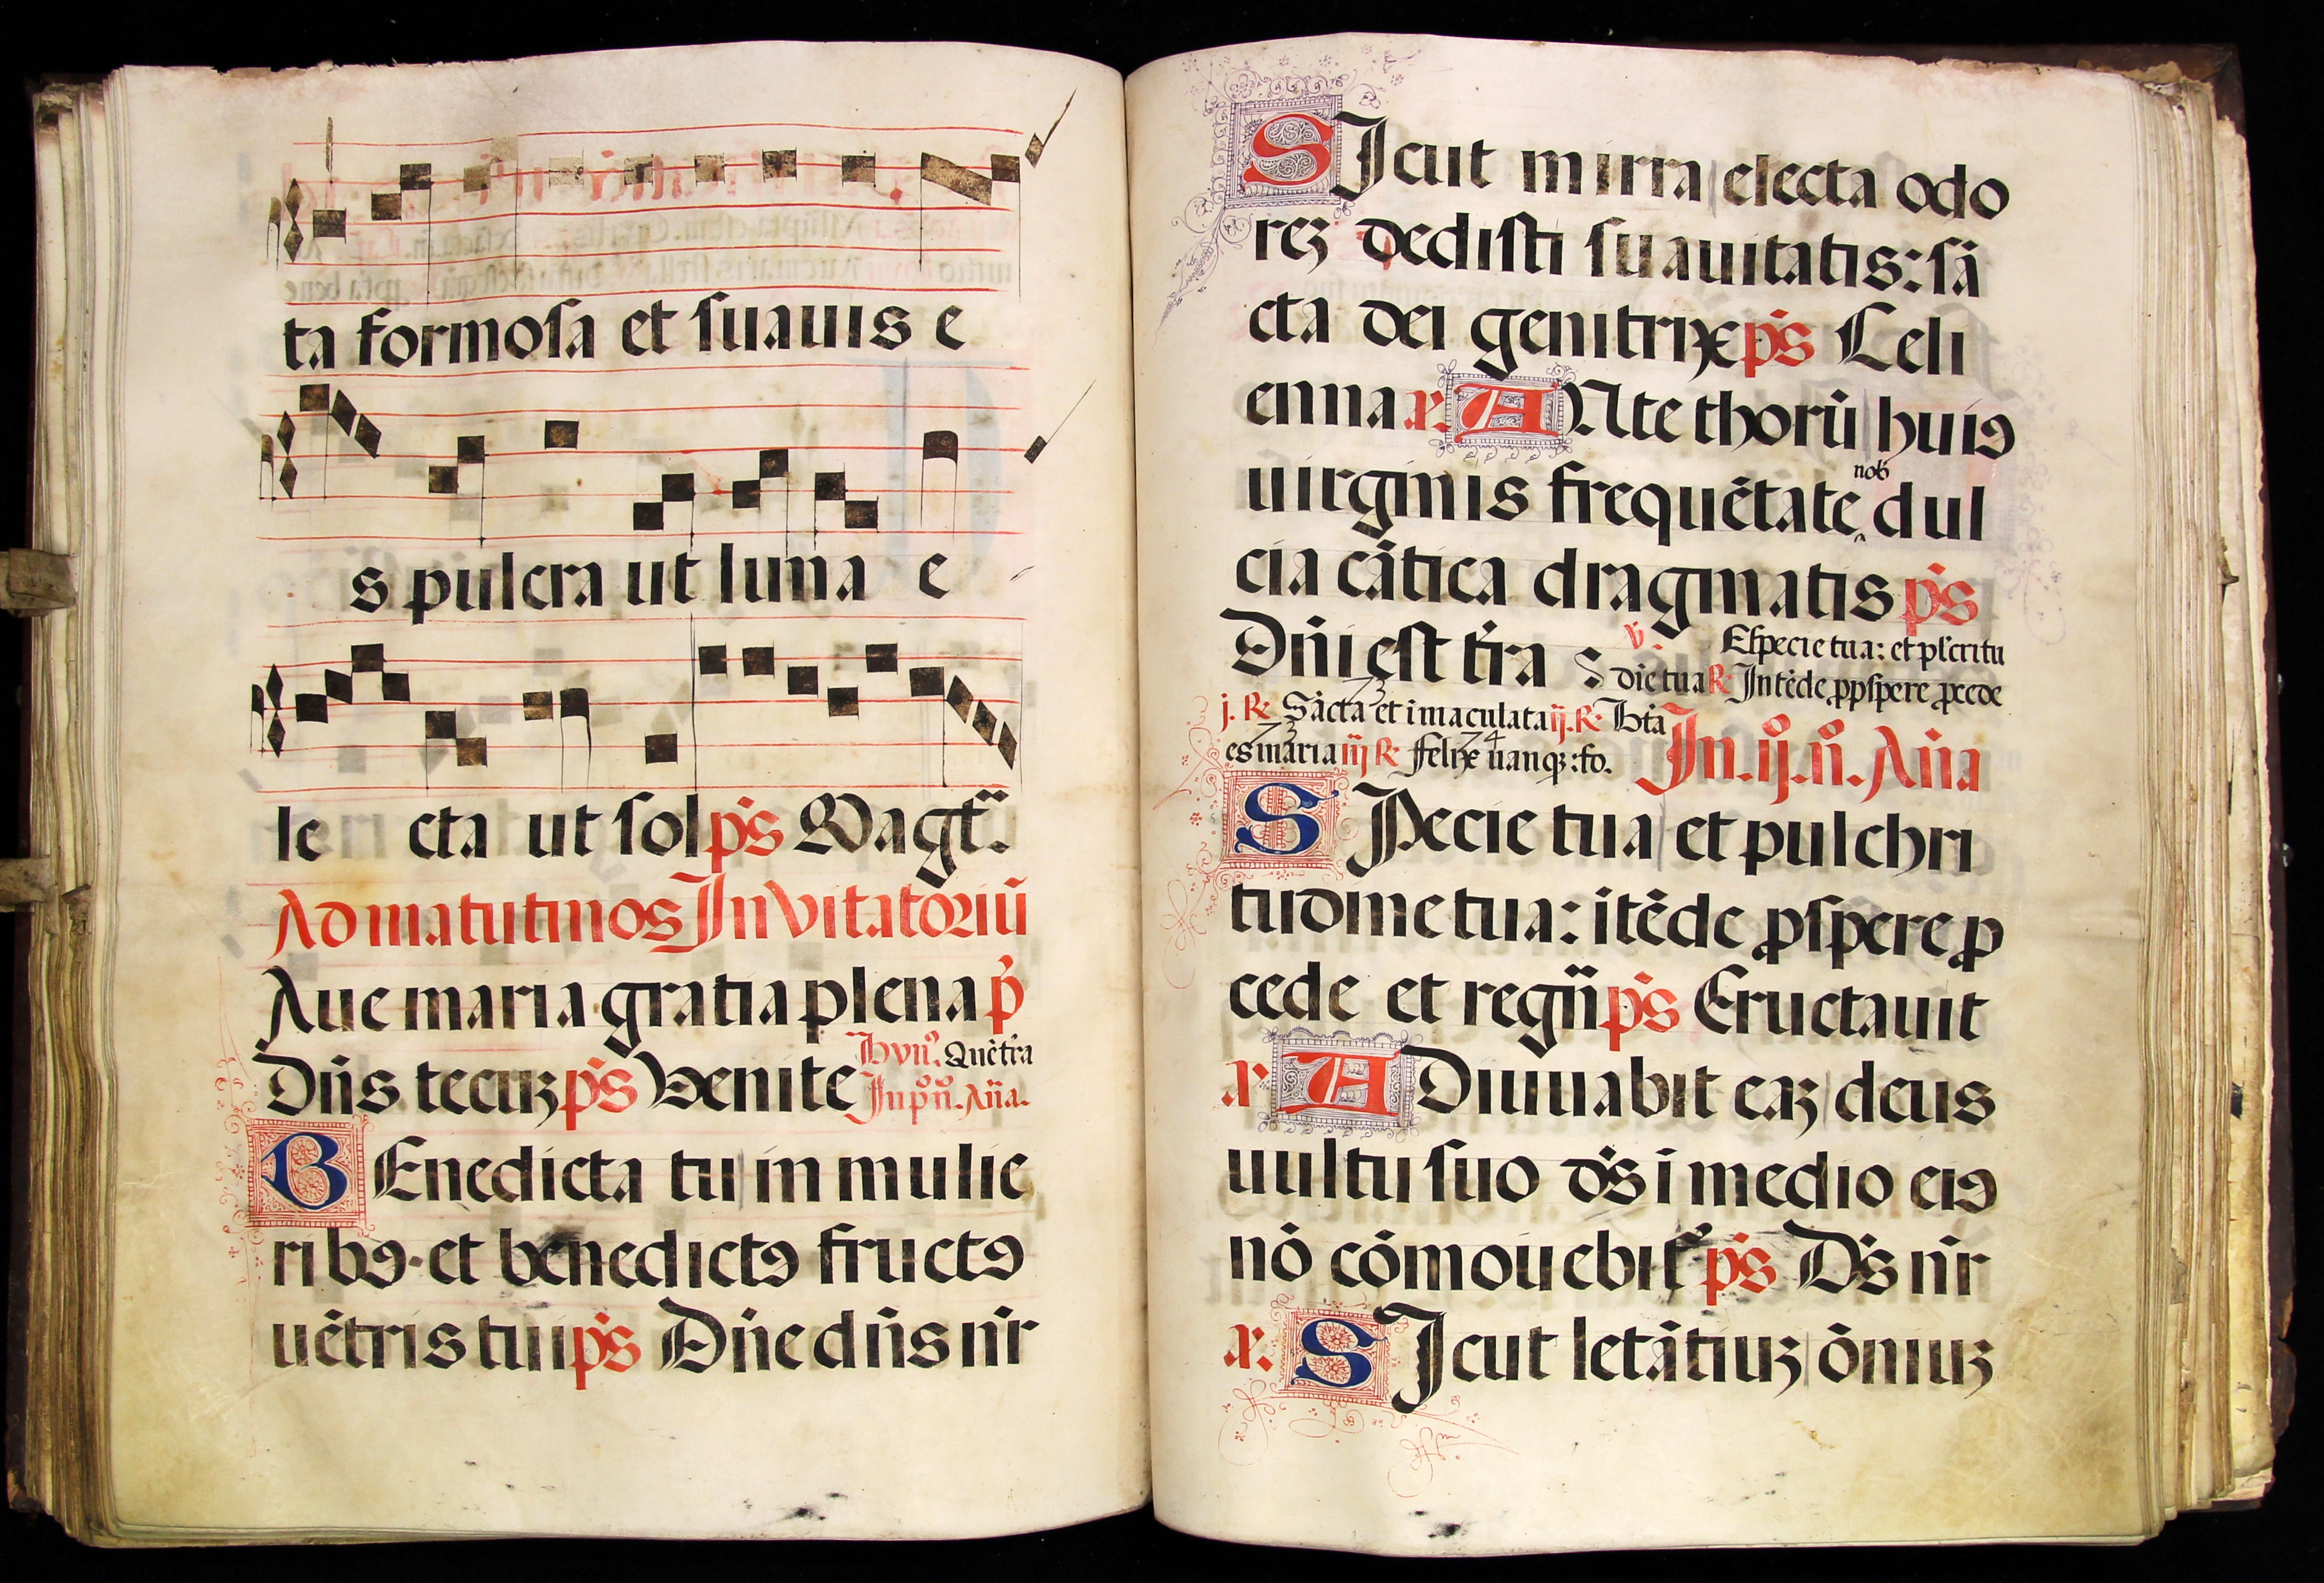 ta formosa et suauis e
s pulcra ut luna e
le cta ut sol p̄s Magt̄.
Ad matutinos Inuitatoriū
Aue maria gratia plena p̄
Dn̄s tecuꝫ p̄s Venite Hyn̄. Quē tr̄a
In pº nº. An̄a.
BEnedicta tu in mulie
ribꝯ· et benedictꝯ fructꝯ
uētris tui p̄s Dn̄e dn̄s nr̄
SIcut mirra electa odo
reꝫ dedisti suauitatis: sā
cta dei genitrix p̄s Celi
enna aͬ. ANte thorū huiꝯ
uirginis frequētate nob̄ dul
cia cātica dragmatis p̄s
Dn̄i est tr̄a ℣. Especie tua: et pl̄critu
dīe tua ℟ Intēde ꝓpspere ꝓcede
j. ℟. Sācta et īmaculata ij. ℟. Bt̄a
73
es maria iij ℟ Felix nanqꝫ: fo. 73 74 In. ij. nº. An̄a
SPecie tua et pulchri
tudine tua: ītēde ꝓspere ꝓ
cede et regn̄ p̄s Eructauit
aͬ. ADiuuabit eaꝫ deus
uultu suo ds̄ ī medio eiꝯ
nō cōmouebit᷑ p̄s Ds̄ nr̄
aͬ. SIcut letātiuꝫ ōniuꝫ